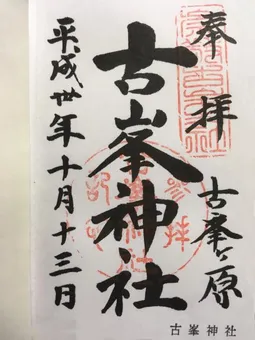 奉拝
古峯ヶ原
古峯神社
平成卅年十月十三日
参拝記
古峯神社